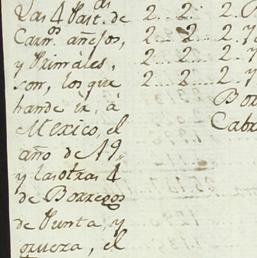 Las 4 Past.as de
Carn.os añejos,
y Primales,
son, los que
hande ir, a
Mexico, el
año de 19,
y las otras 4
de Borregos
de Punta, y
, el
2 2 2
2 2 2.7
2 2 2.7
2 2 2.7
Bor
Cabr